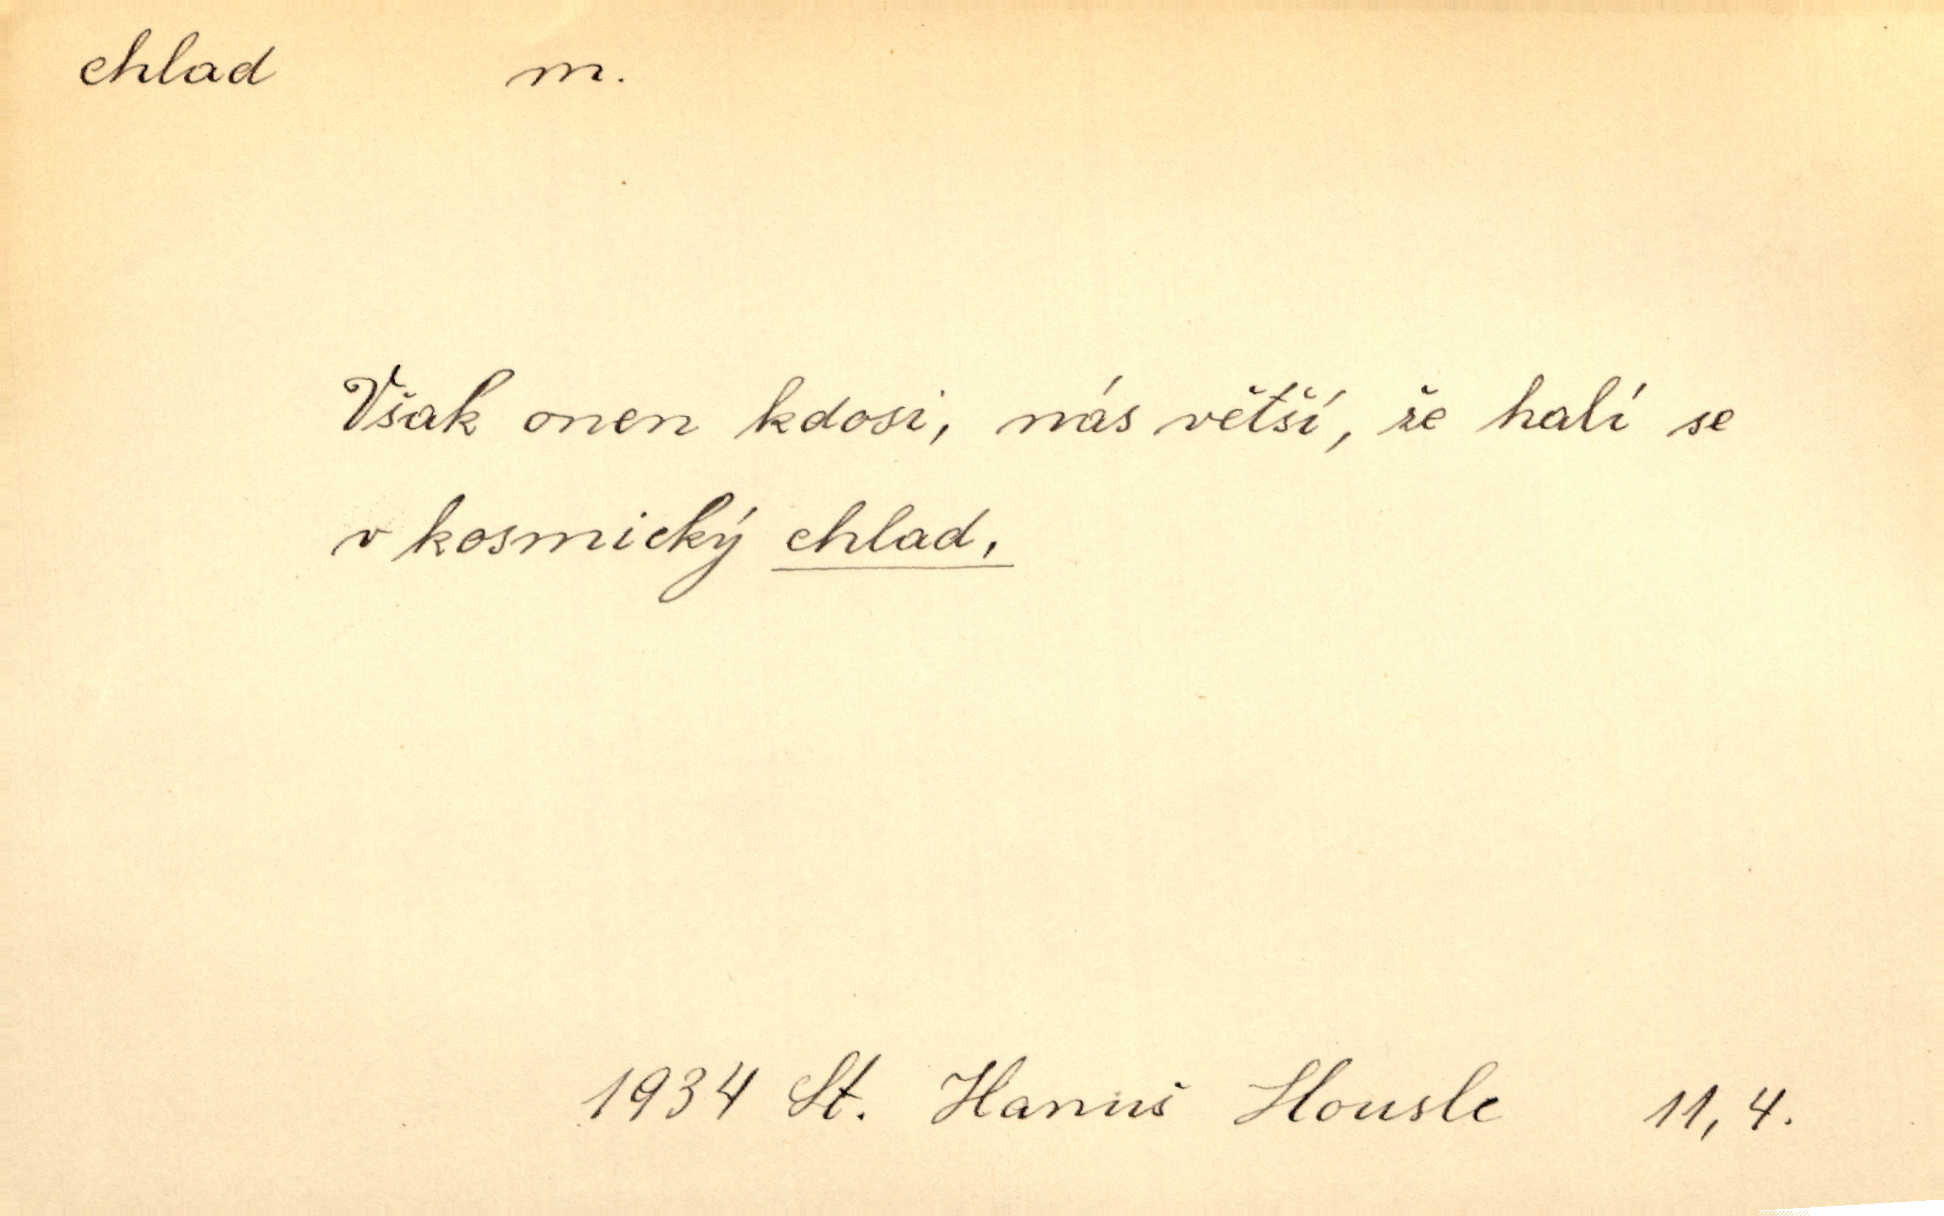 chlad m.
Však onen kdosi, nás větší, že halí se
v kosmický chlad,
1934 St. Hanuš Housle 11, 4.